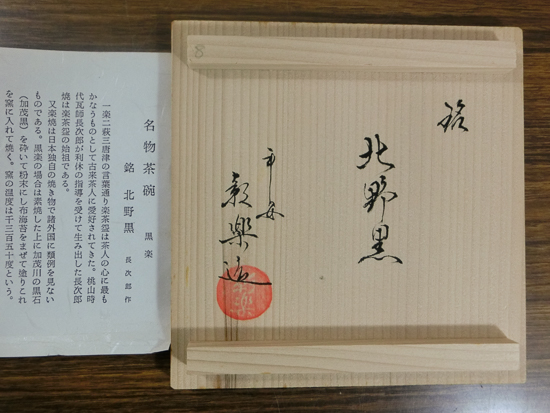 銘
北野黒
平安
楽造
8
名物茶碗 黒楽
銘 北野黒 長次郎作
一楽二萩三唐津の言葉通り楽茶盌は茶人の心に最も
かなうものとして古来茶人に愛好されてきた。桃山時
代瓦師長次郎が利休の指導を受けて生み出した長次郎
焼は楽茶盌の始祖である。
又楽焼は日本独自の焼き物で諸外国に類例を見ない
ものである。黒楽の場合は素焼した上に加茂川の黒石
(加茂黒)を砕いて粉末にし布海苔をまぜて塗りこれ
を窯に入れて焼く。窯の温度は千三百五十度という。